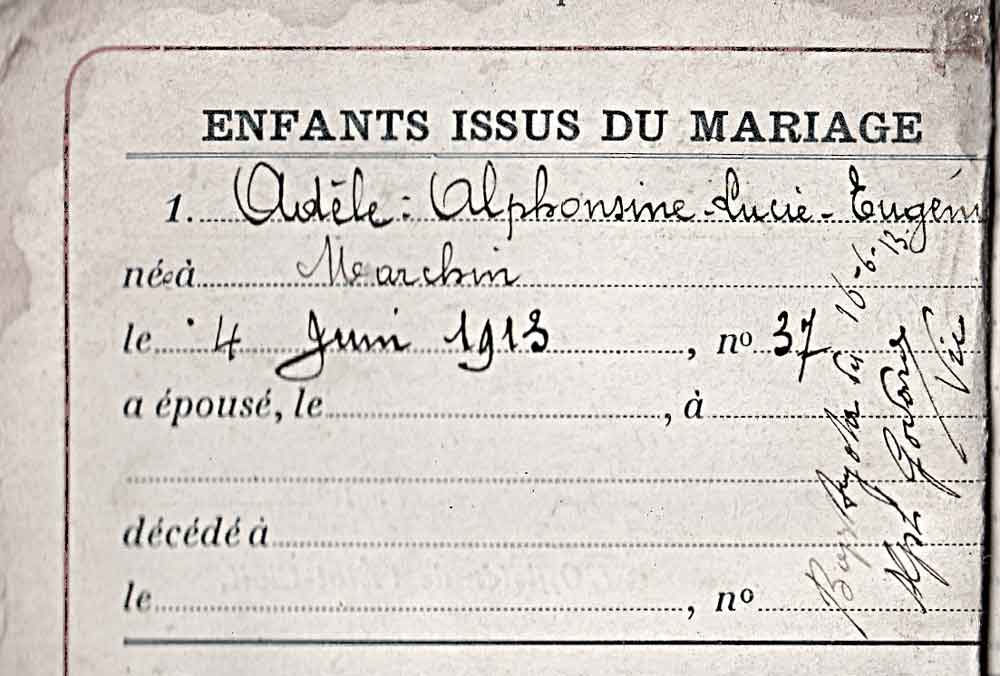 ENFANTS ISSUS DU MARIAGE
1. Adèle-Alphonsine-Lucie-Eugéni
née à Marchin
le 4 Juin 1913, nº 37
a épousé, le , à
décédé à
le , nº
16-6-13
Alph
Vic